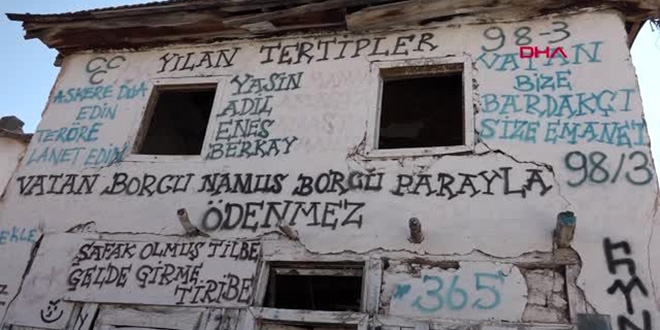 YILAN TERTİPLER
98-3
DHA
ASKERE DUA
EDİN
TERÖRE
LANET EDİN
YASİN
ADİL
ENES
BERKAY
VATAN
BİZE
BARDAKÇI
SİZE EMANET
98/3
VATAN BORCU NAMUS BORCU PARAYLA
ÖDENMEZ
EKLE
ŞAFAK OLMUŞ TİLBE
GELDE GİRME
TİRİBE
365